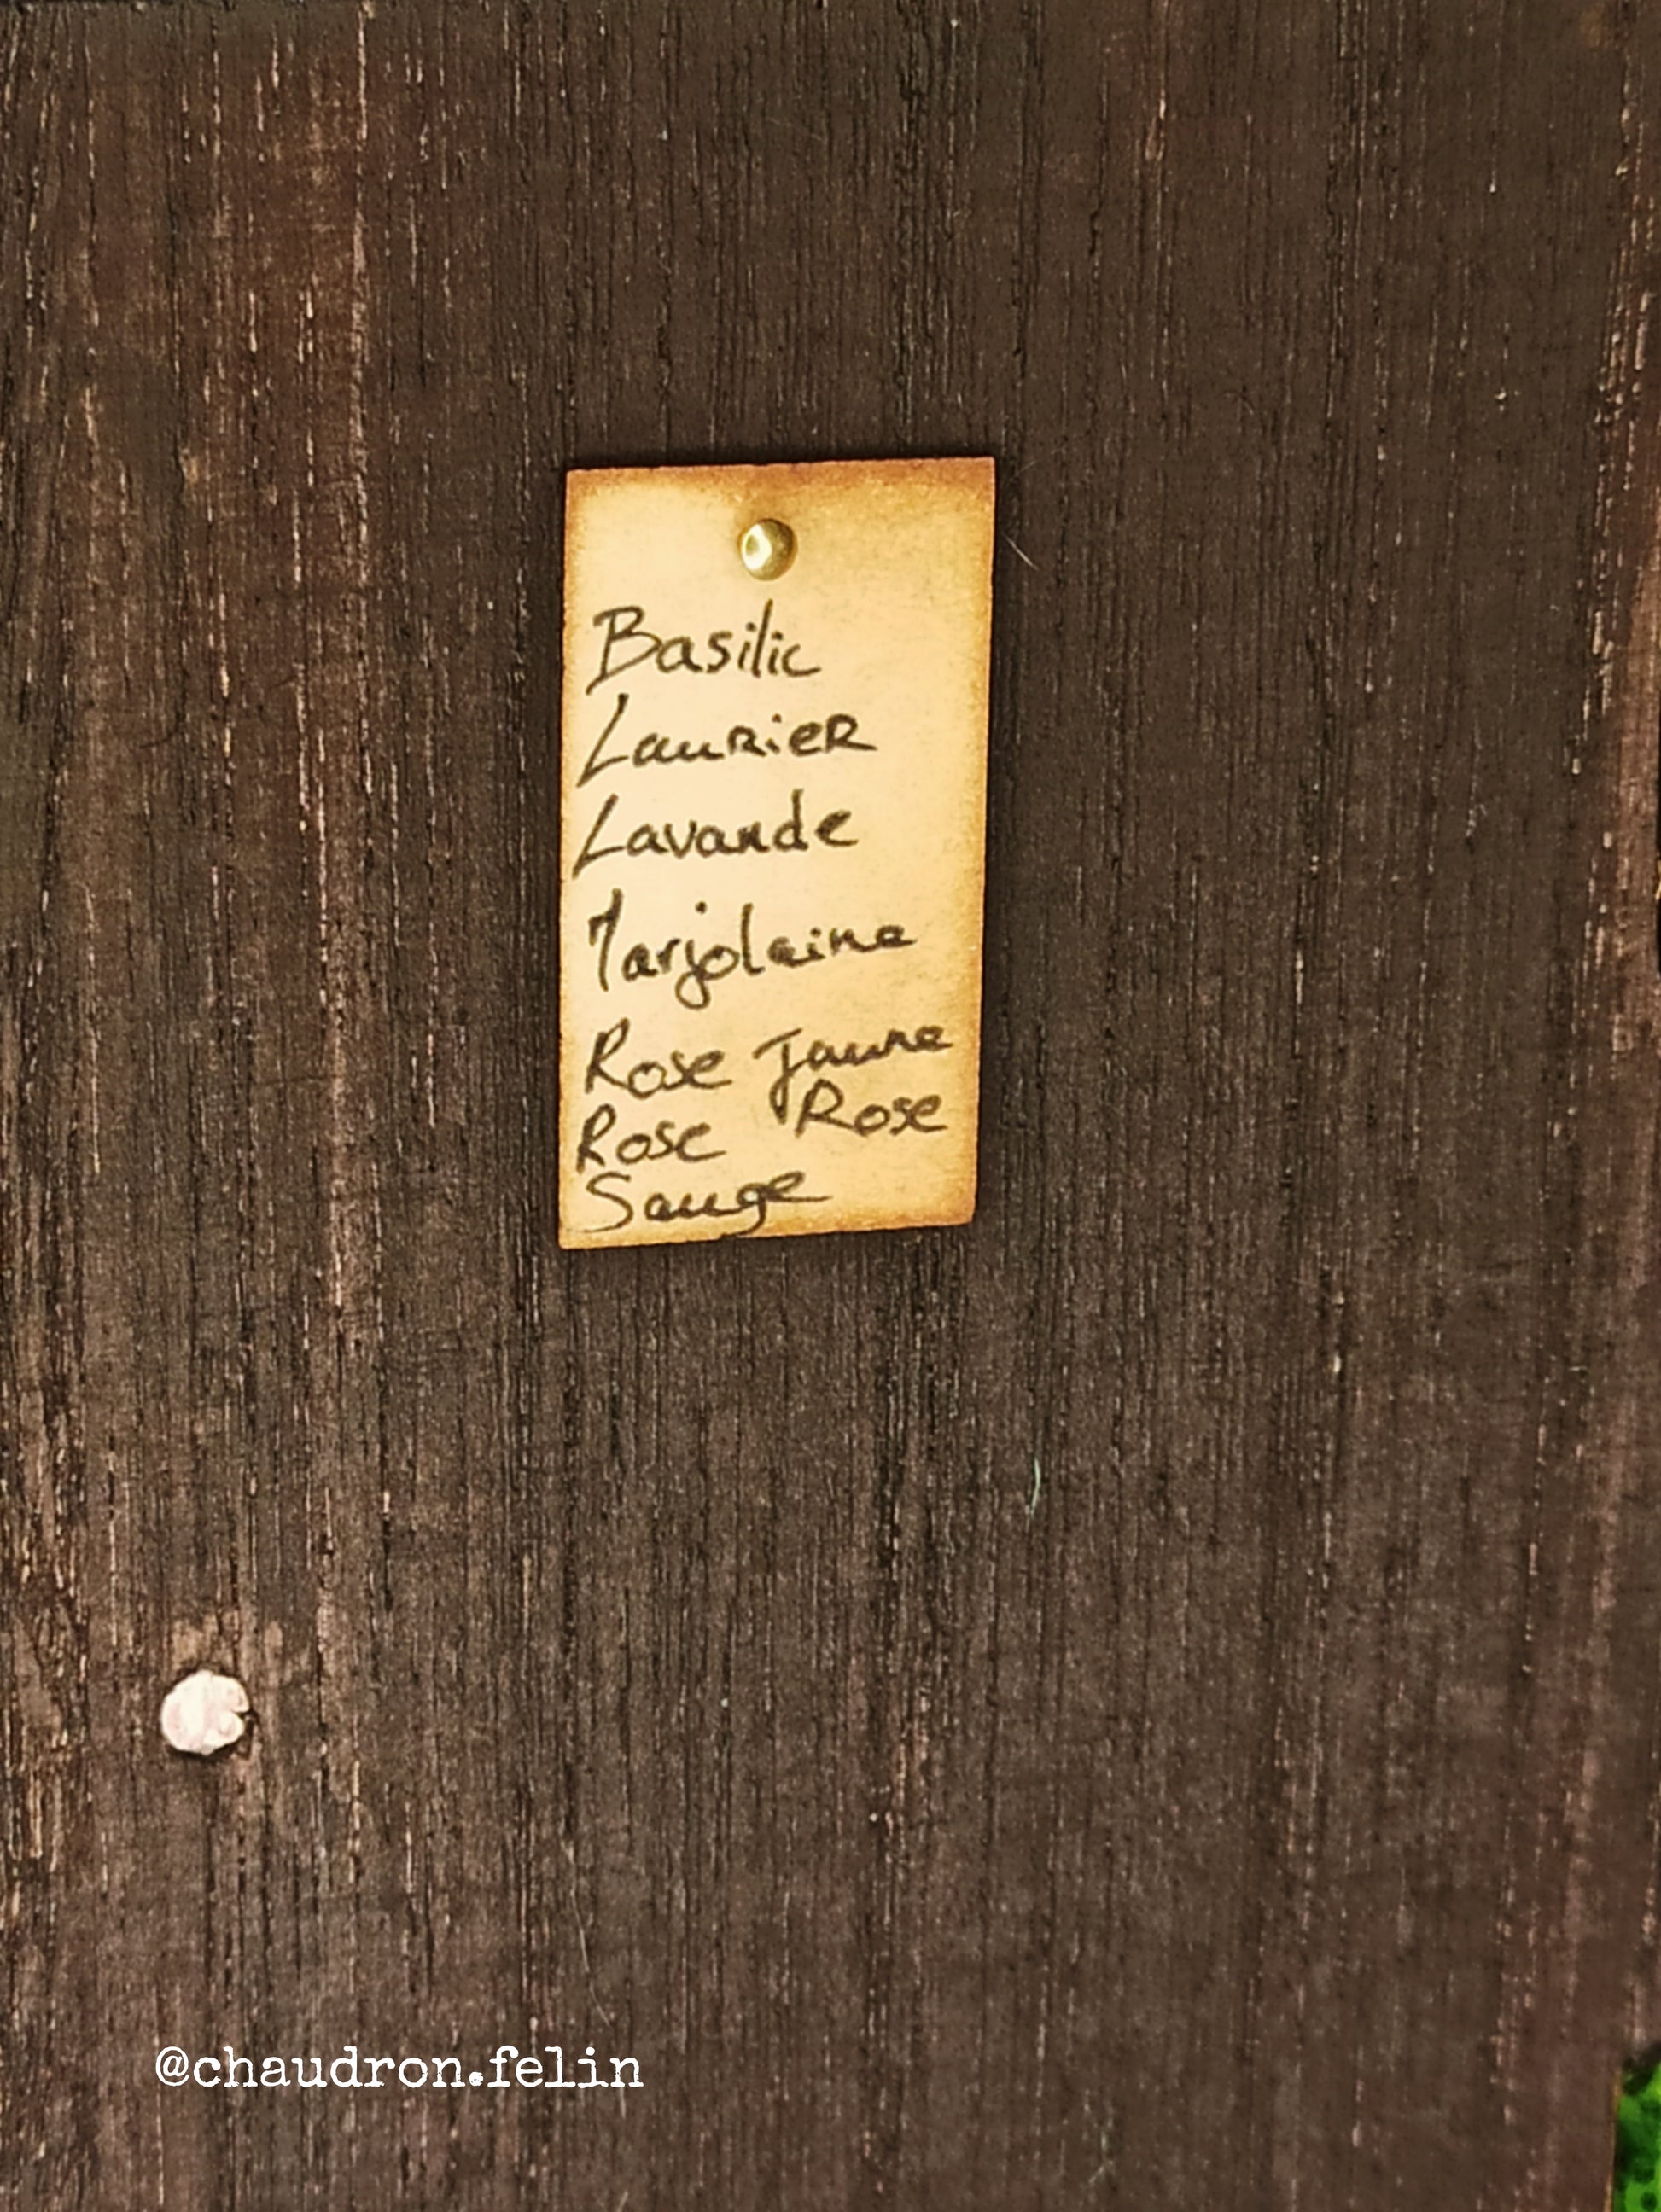 Basilic
Laurier
Lavande
Marjolaine
Rose Jaune
Rose Rose
Sauge
@chaudron.felin